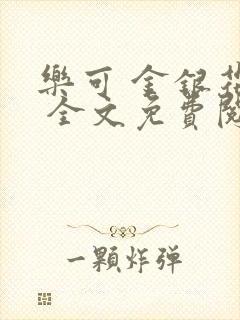 樂可 金銀花
全文免費閱
一顆炸弹